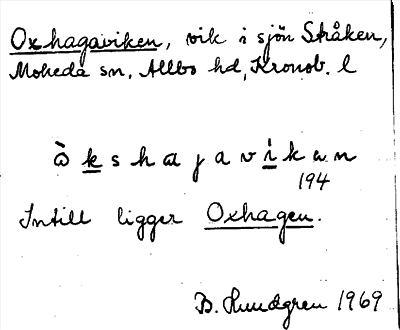 Oxhagaviken, vik i sjön Stråken,
Moheda sn, Allbo hd, Kronob. l
194
Intill ligger Oxhagen.
1969